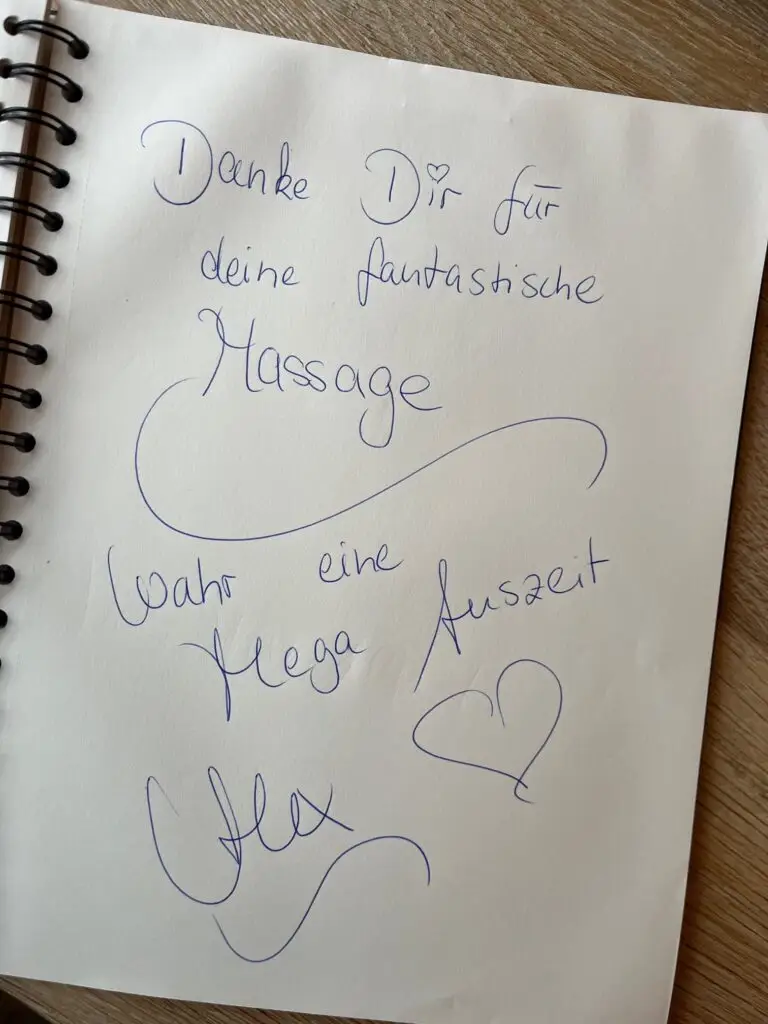 Danke Dir für
deine fantastische
Massage
Wahr eine
Mega Auszeit
Alex